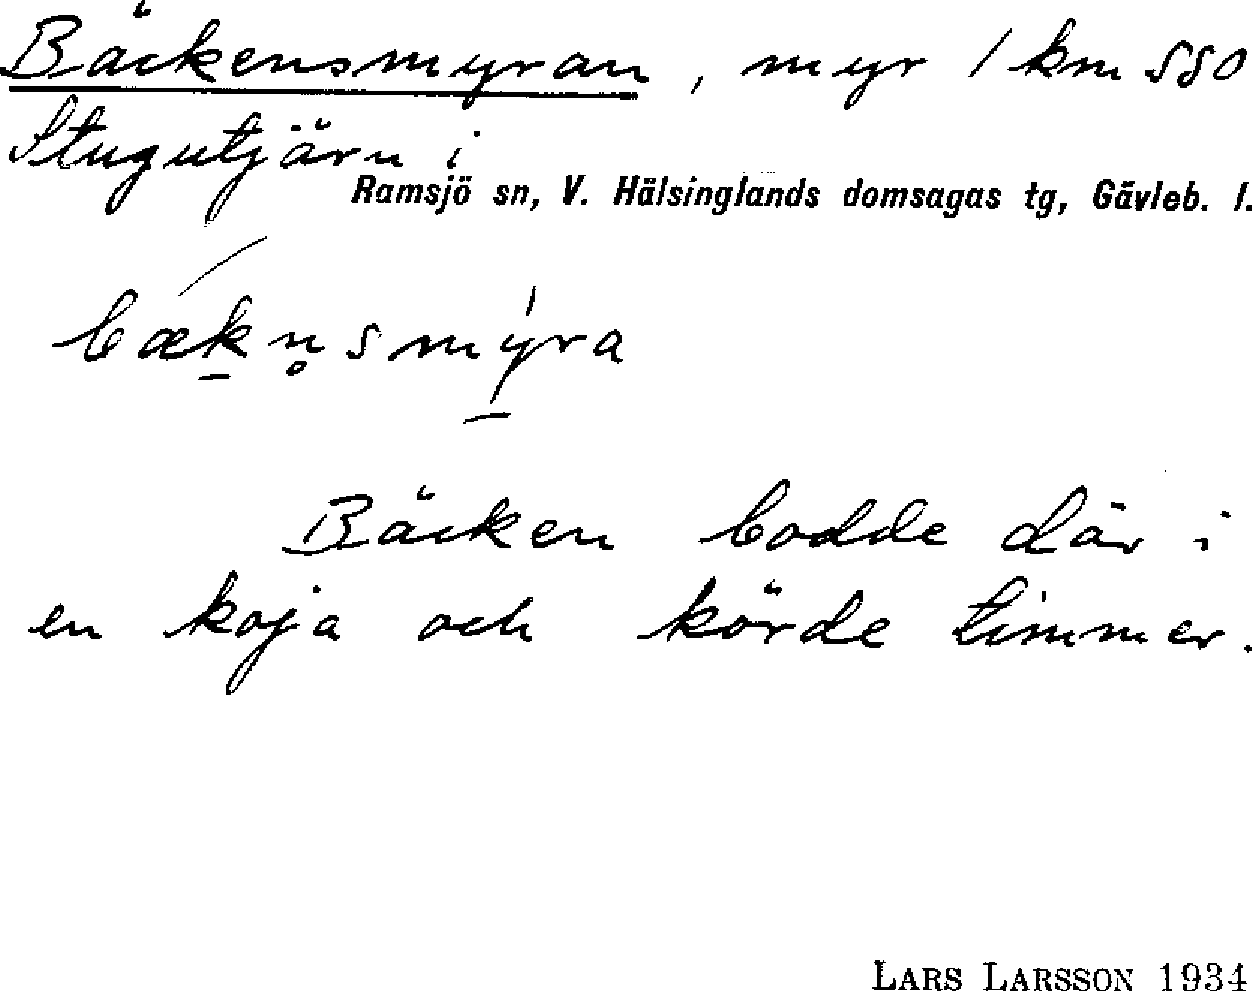 Bäckensmyran, myr 1 km SSO
Stugutjärn i
Ramsjö sn, V. Hälsinglands domsagas tg, Gävleb. l.
bæ̀k̠n̥smýr̠a
Bäcken bodde där i
en koja och körde timmer.
LARS LARSSON 1934